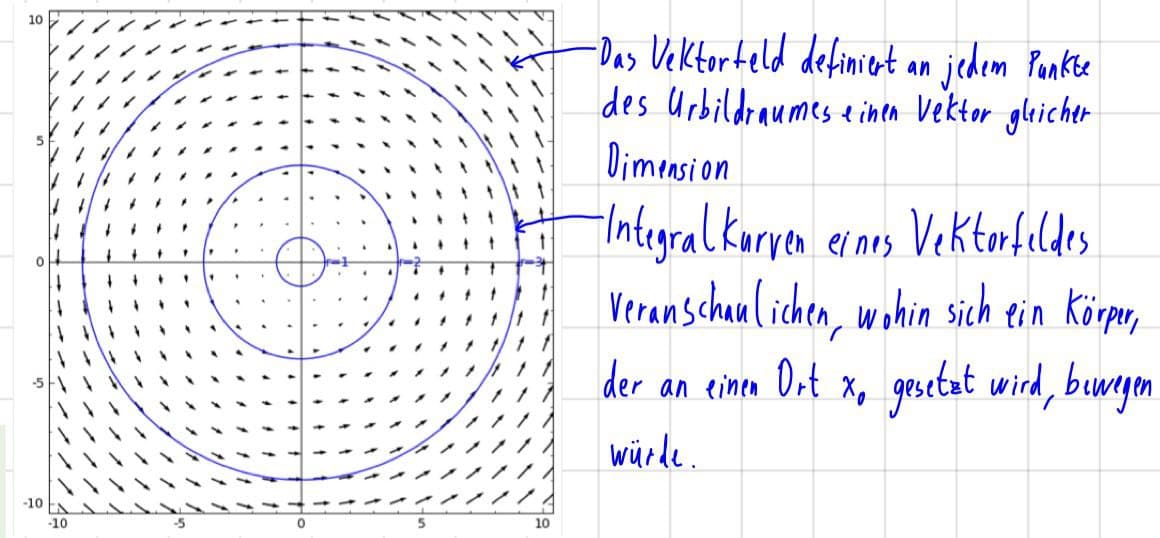 10
5
0
-5
-10
-10
-5
0
5
10
r=1
r=2
r=3
Das Vektorfeld definiert an jedem Punkte
des Urbildraumes einen Vektor gleicher
Dimension
Integralkurven eines Vektorfeldes
veranschaulichen, wohin sich ein Körper,
der an einen Ort x₀ gesetzt wird, bewegen
würde.